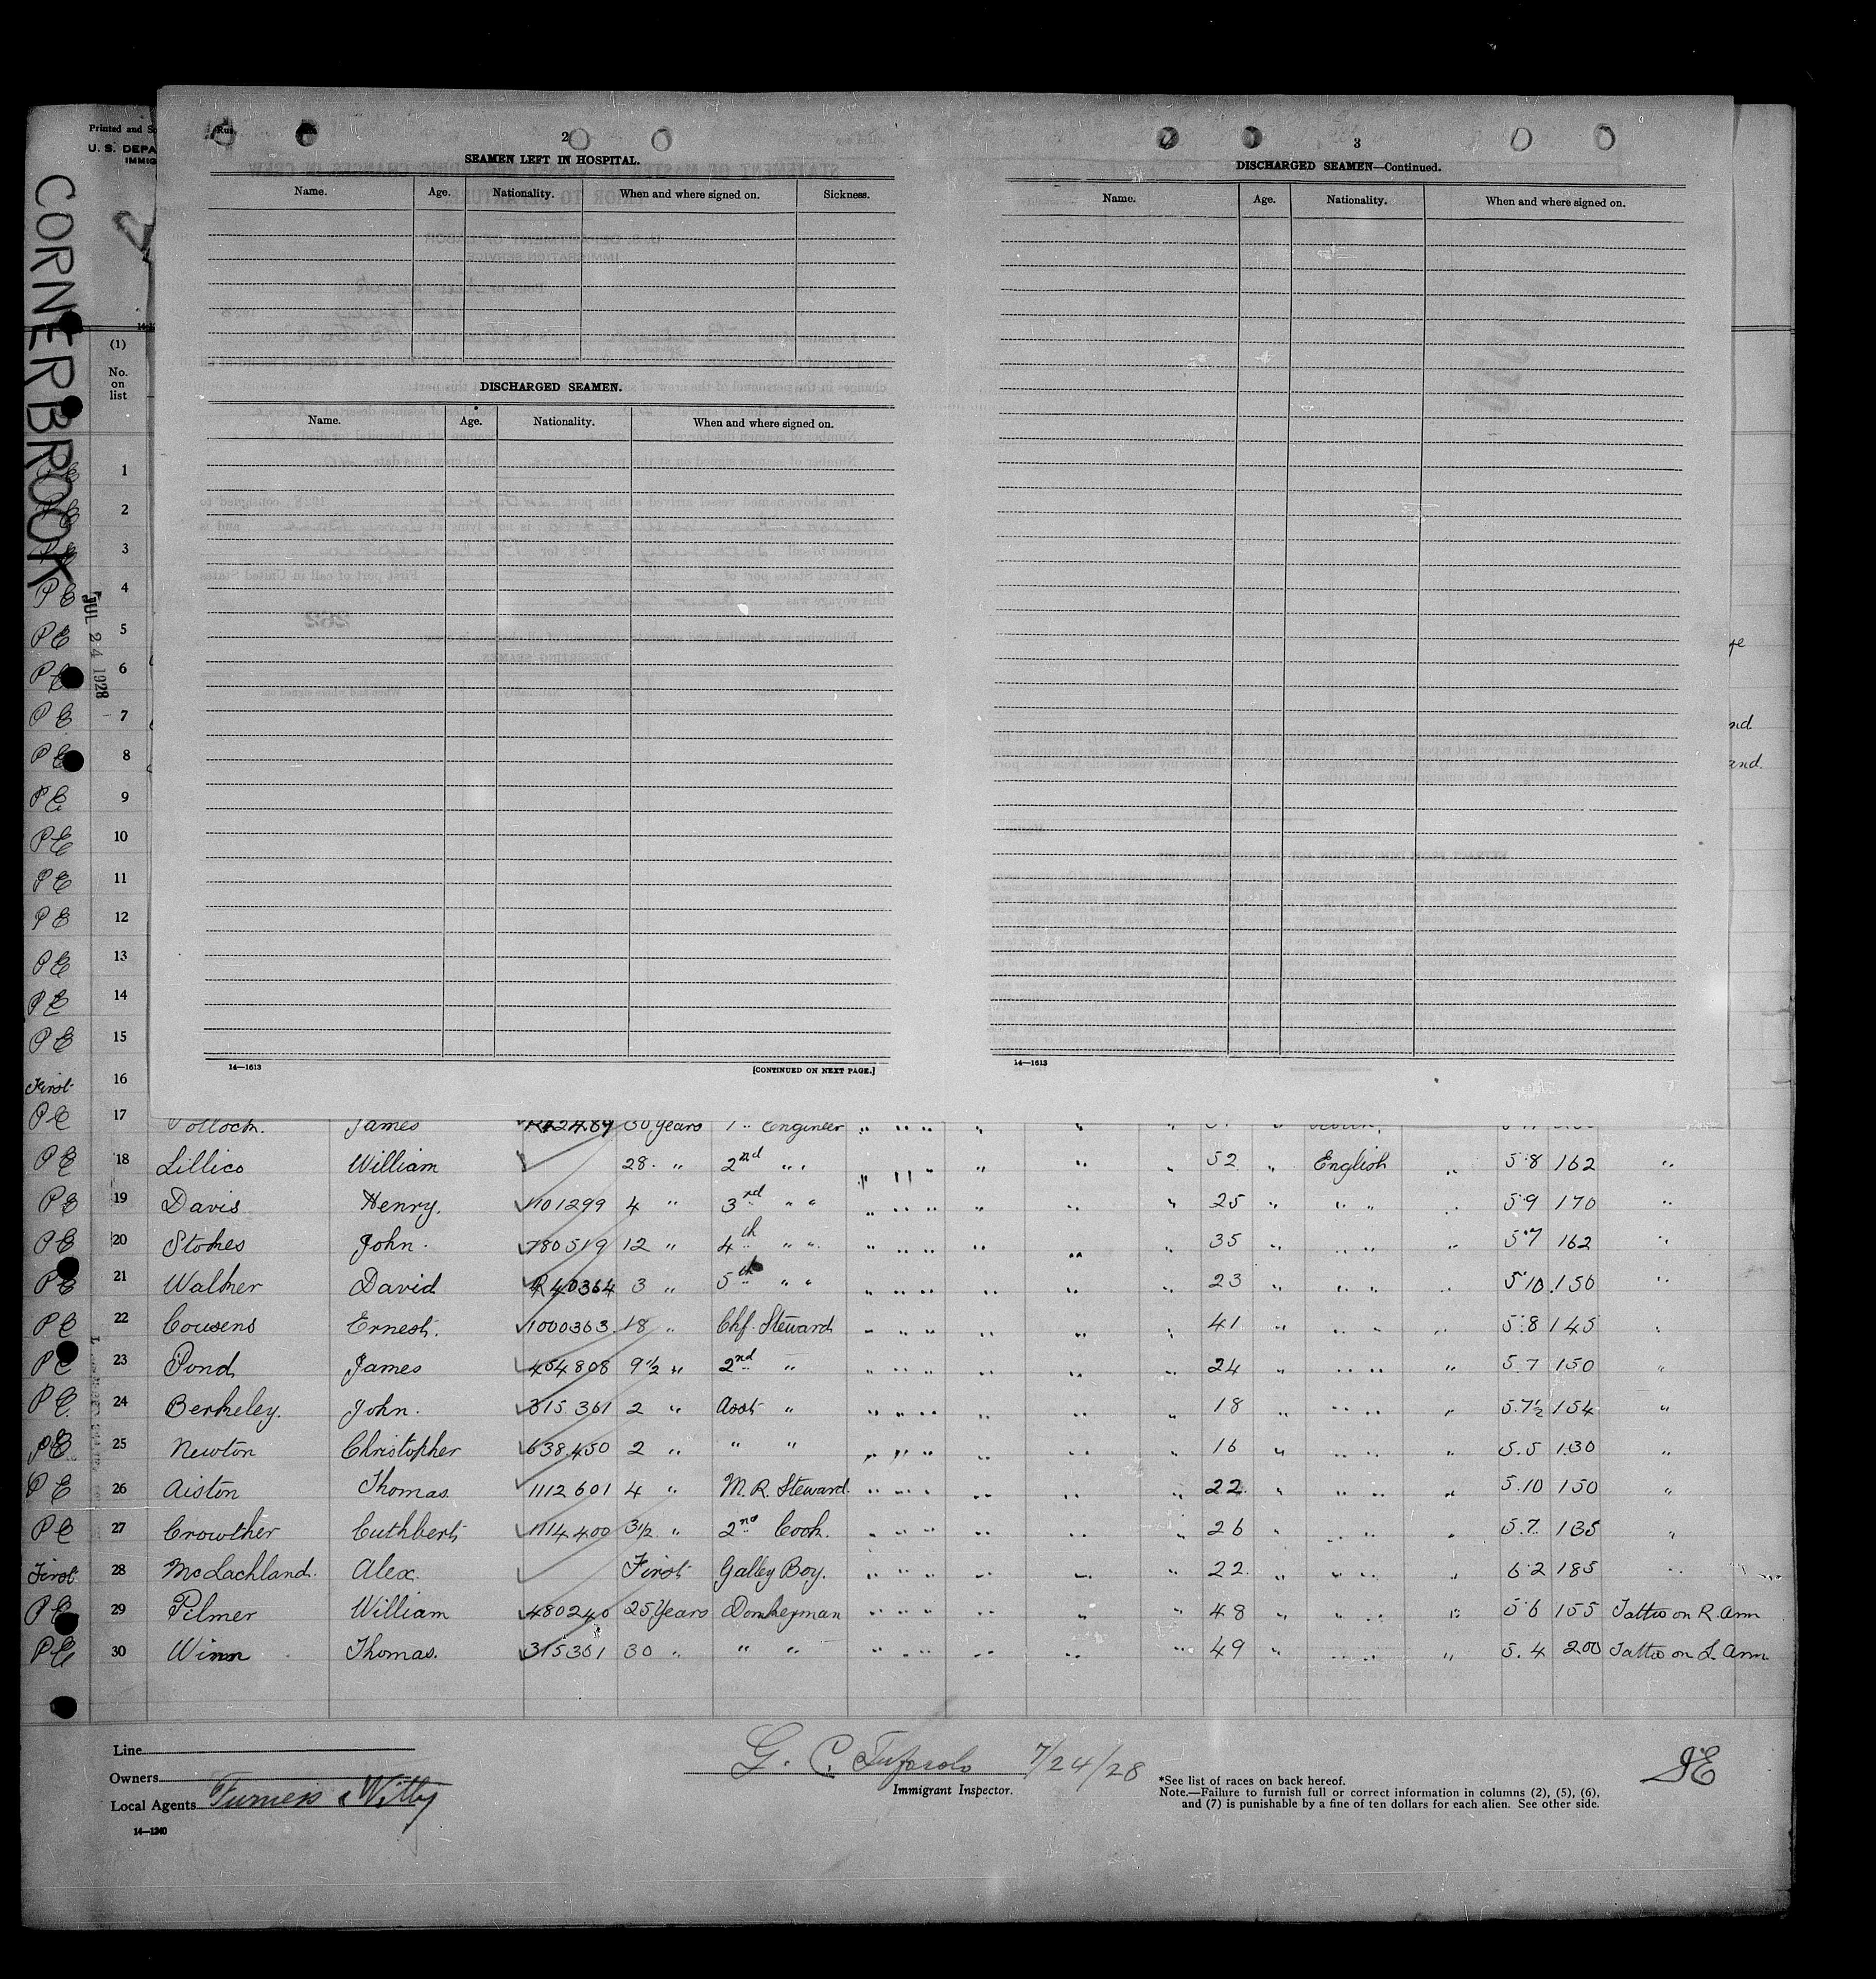 Printed and S
U. S. DEPA
IMMIG
CORNERBROOK
JUL 24 1928
2
SEAMEN LEFT IN HOSPITAL.
Name. Age. Nationality. When and where signed on. Sickness.
DISCHARGED SEAMEN.
Name. Age. Nationality. When and where signed on.
14—1613 [CONTINUED ON NEXT PAGE.]
3
DISCHARGED SEAMEN—Continued.
Name. Age. Nationality. When and where signed on.
14—1613
(1)
No.
on
list
PE 1
PE 2
PE 3
PE 4
PE 5
PE 6
PE 7
PE 8
PE 9
PE 10
PE 11
PE 12
PE 13
PE 14
PE 15
First 16
PE 17 Pollock. James 30 years 1" Engineer " " " " " "
PE 18 Lillico William 28 " 2nd " " " " " " " " 52 " English " 5.8 162 "
PE 19 Davis Henry. 1101299 4 " 3rd " " " " " " " " 25 " " " " 5.9 170 "
PE 20 Stokes John. 780519 12 " 4th " " " " " " " " 35 " " " " 5.7 162 "
PE 21 Walker David R40364 3 " 5th " " " " " " " " 23 " " " " 5.10 150 "
PE 22 Cousens Ernest. 1000363 18 " Chf. Steward " " " " " " 41 " " " " 5.8 145 "
PE 23 Pond James 454808 9½ " 2nd " " " " " " " 24 " " " " 5.7 150 "
PE 24 Berkeley. John. 315361 2 " Asst " " " " " " " 18 " " " " 5.7½ 154 "
PE 25 Newton Christopher 638450 2 " " " " " " " " " 16 " " " " 5.5 130 "
PE 26 Aiston Thomas. 1112601 4 " M. R. Steward. " " " " " " 22 " " " " 5.10 150 "
PE 27 Crowther Cuthbert 1114400 3½ " 2nd Cook. " " " " " " 26 " " " " 5.7 135 "
First 28 McLachland. Alex. First Galley Boy. " " " " " " 22 " " " " 6.2 185 "
PE 29 Pilmer William 480240 25 Years Donkeyman " " " " " " 48 " " " " 5.6 155 Tattoo on R. Arm
PE 30 Winn Thomas. 315361 30 " " " " " " " " " 49 " " " " 5.4 200 Tattoo on L. Arm
Line
Owners
Local Agents Furness & Withy
14—1240
G. C. 7/24/28
Immigrant Inspector.
*See list of races on back hereof.
Note.—Failure to furnish full or correct information in columns (2), (5), (6),
and (7) is punishable by a fine of ten dollars for each alien. See other side.